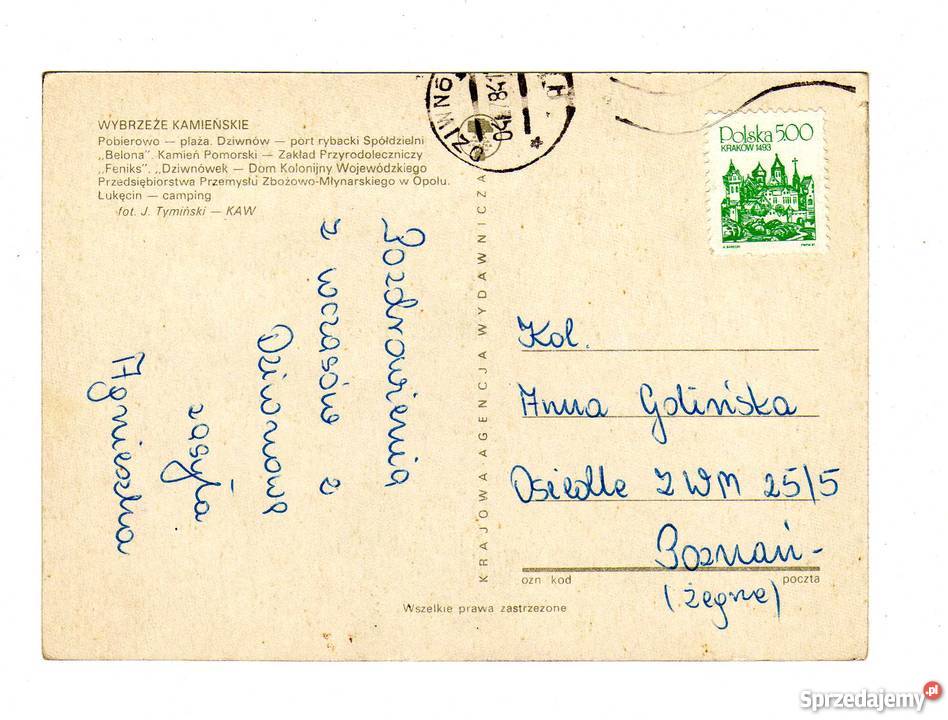 WYBRZEŻE KAMIEŃSKIE
Pobierowo — plaża. Dziwnów — port rybacki Spółdzielni
„Belona". Kamień Pomorski — Zakład Przyrodoleczniczy
„Feniks". „Dziwnówek — Dom Kolonijny Wojewódzkiego
Przedsiębiorstwa Przemysłu Zbożowo-Młynarskiego w Opolu.
Łukęcin — camping
fot. J. Tymiński — KAW
Pozdrowienia
z wczasów z
Dziwnowa
zasyła
Agnieszka
KRAJOWA AGENCJA WYDAWNICZA
DZIWNÓ
Polska 5.00
KRAKÓW 1493
Kol.
Anna Golińska
Osiedle ZWM 25/5
Poznań-
(Żegrze)
ozn kod
poczta
Wszelkie prawa zastrzeżone
Sprzedajemy.pl